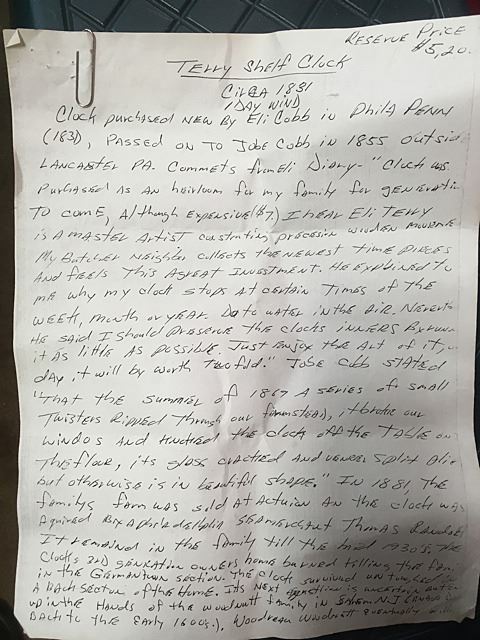 RESERVE PRICE
$5,20
Terry Shelf Clock
Circa 1831
1 Day Wind
Clock purchased new By Eli Cobb in Phila Penn
(1831), PASSED ON TO Jobe Cobb in 1855 outside
LANCASTER PA. Commets from Eli Diary- "Clock was
Purchased As AN heirloom for my family for generatio
TO COME, Although expensive ($7.) I hear Eli Terry
is A master Artist constructing precision wooden
My Butcher Neighbor collects the newest Time Pieces
And feels This A great Investment. He explained to
me why my clock stops At certain Times of the
week, month or year. Do to water in the Air.
He said I should preserve the clocks inners By
it As little As possible. Just enjoy the Art of it,
day, it will be worth Twofold." Jobe Cobb stated
"That the summer of 1867 A series of small
Twisters Ripped Through our farmstead, it broke our
windos And the clock off the Table on
The floor, its glass cracked And veneer split
but otherwise is in beautiful shape." In 1881, The
familys farm was sold At Actuion An the clock was
Aquired By A philadelphia Thomas
It remained in the family till the mid 1930's. The
Clocks 3RD generation owners home burned
in the Germantown section. The clock survived untouched in
A Back section of the home. Its next is uncertain
up in the Hands of the Woodnutt family in Salem NJ
BACK to the Early 1600s.). Woodnutt eventually